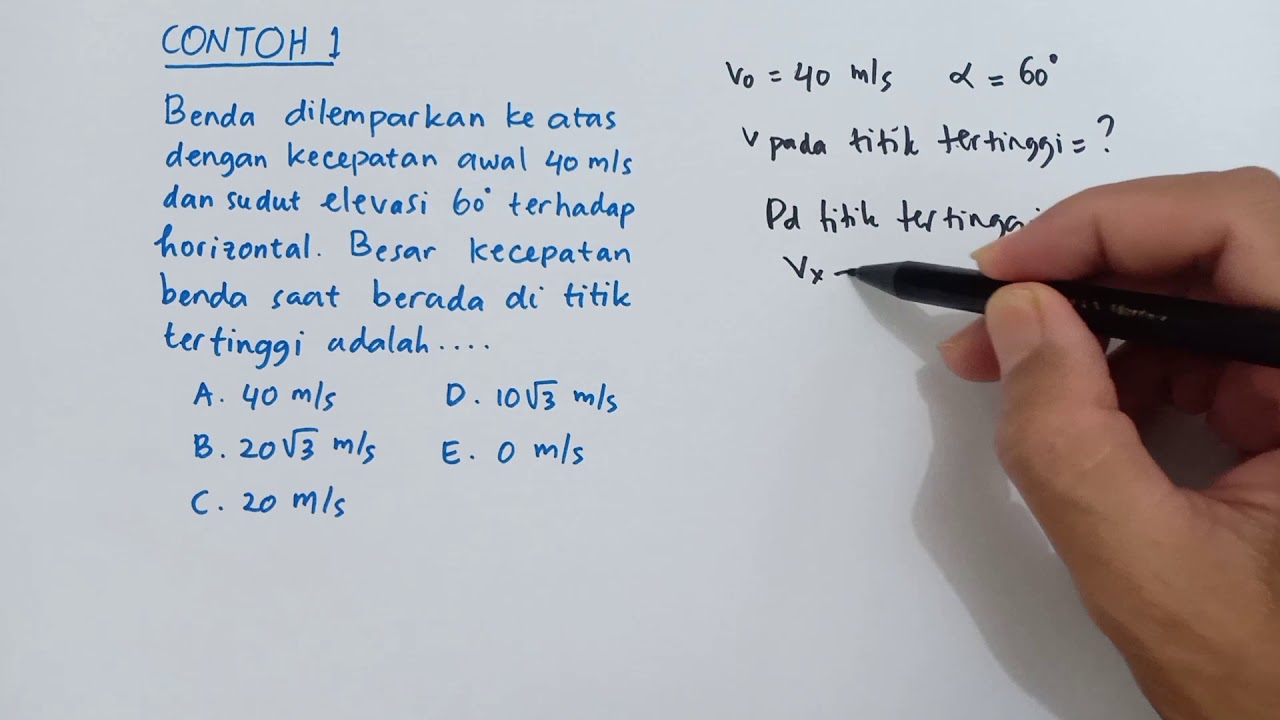 CONTOH 1
Benda dilemparkan ke atas
dengan kecepatan awal 40 m/s
dan sudut elevasi 60° terhadap
horizontal. Besar kecepatan
benda saat berada di titik
tertinggi adalah....
A. 40 m/s
B. 20√3 m/s
C. 20 m/s
D. 10√3 m/s
E. 0 m/s
v₀ = 40 m/s α = 60°
v pada titik tertinggi = ?
Pd titik
Vx